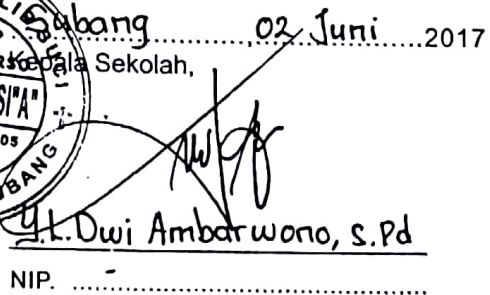 Subang, 02 Juni 2017
Kepala Sekolah,
Y.L. Dwi Ambarwono, S.Pd
NIP. -
SI "A"
05
BANG